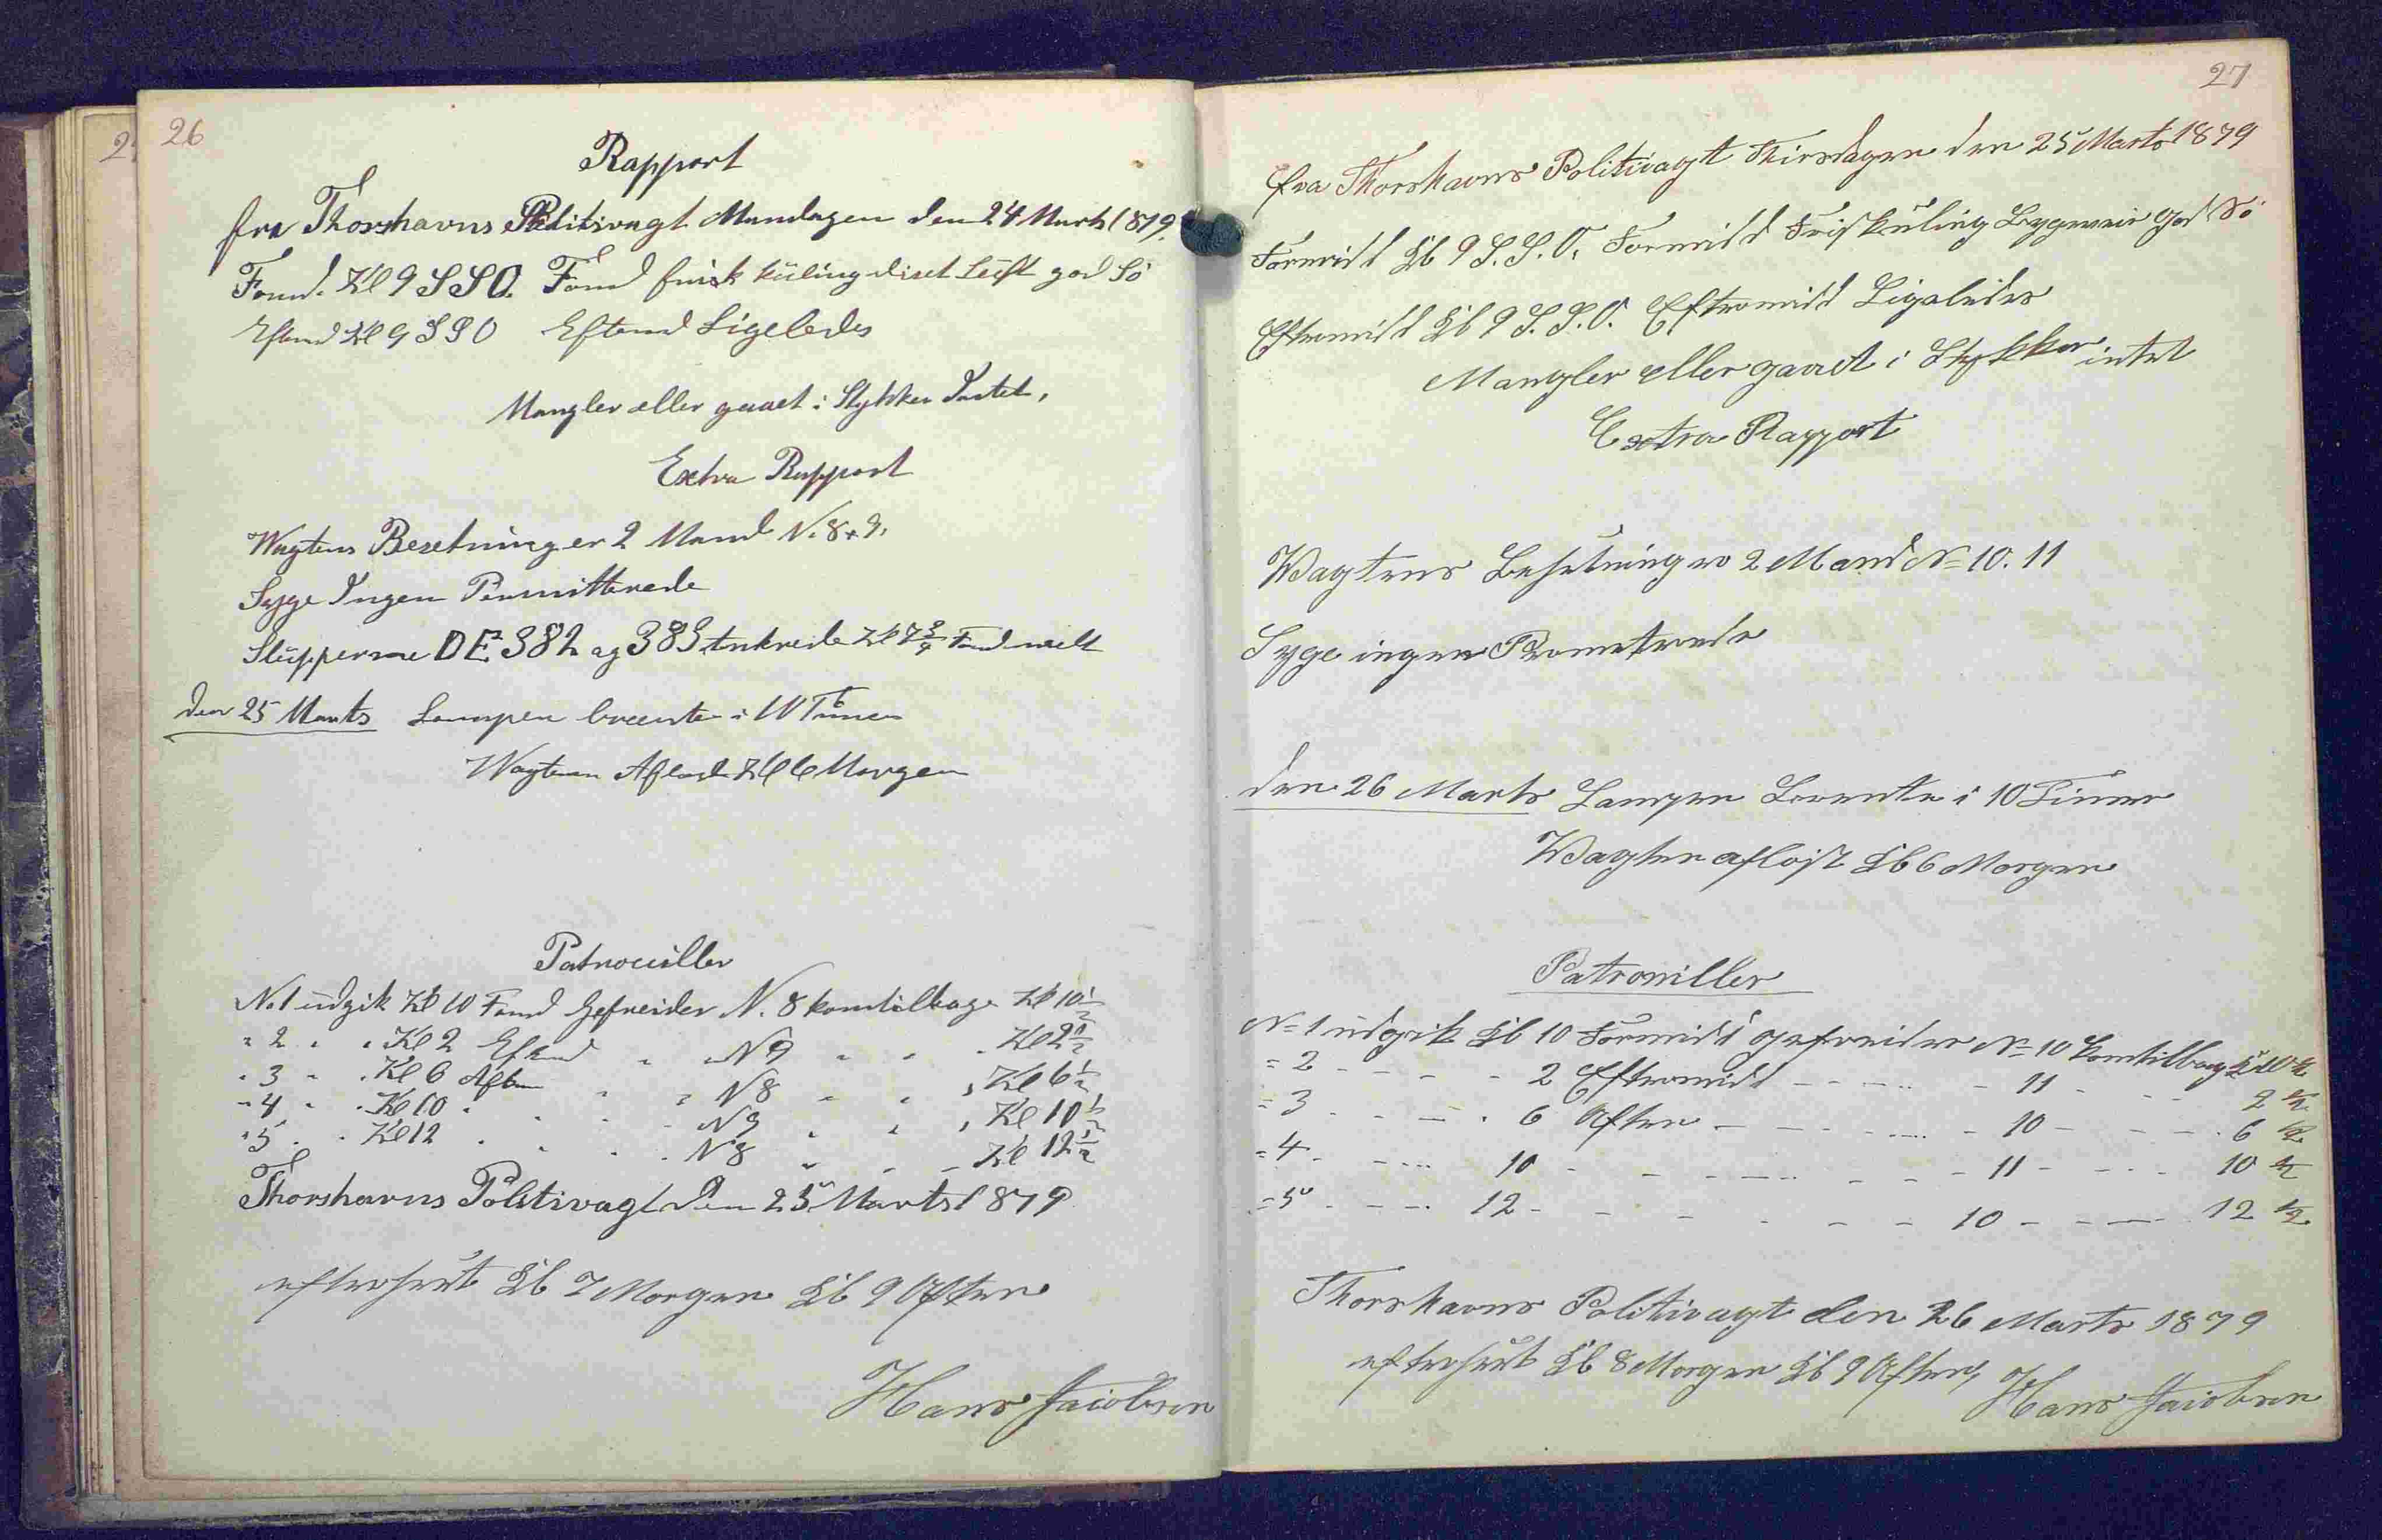 26
Rapport
fra Thorshavns Politivagt Mandagen den 24 Marts 1879.
Formd. Kl 9 SSO. Formd frisk küling diset Lüft god Sö
Eftmd Kl 9 SSO Eftmd Ligeledes
Mangler eller gaaet i Stykker Intet,
Extra Rapport
Wagtens Besetning er 2 Mand N. 8 + 9.
Syge Ingen Permitterede
Slüpperne DE 382 og 383 Ankrede Kl 7¾ Formd
den 25 Marts Lampen brente i 10 Timer
Wagten Aflöst Kl 6 Morgen
Patrouiller
N. 1 üdgik Kl 10 Formd Gefreider N. 8 kom tilbage Kl 10½
" 2 " " Kl 2 Eftmd " " N 9 " " " Kl 2½
" 3 " " Kl 6 Aften " " N 8 " " " Kl 6½
" 4 " " Kl 10 " " " N 9 " " " Kl 10½
" 5 " " Kl 12 " " " N 8 " " " Kl 12½
Thorshavns Politivagt den 25 Marts 1879
efterseet Kl 7 Morgen Kl 9 Aften
Hans Jacobsen
27
fra Thorshavns Politivagt Thirsdagen den 25 Marts 1879
Formidd Kl 9 S.S.O. Formidd Friskküling Bygeveir god Sö
Eftermidd Kl 9 S.S.O. Eftermidd Ligeledes
Mangler eller gaaet i Stykker intet
Extra Rapport
Wagtens Besetning er 2 Mand No 10. 11
Syge ingen
den 26 Marts Lampen Brente i 10 Timer
Wagten aflöst Kl 6 Morgen
Patrouiller
No 1 üdgik Kl 10 Formidd gefreider No 10 kom tilbag Kl 10½
= 2 - - - - 2 Eftermidd - - - - 11 - - - 2½
= 3 - - - - 6 Aften - - - - 10 - - - 6½
= 4 - - - - 10 - - - - 11 - - - 10½
= 5 - - - - 12 - - - - 10 - - - 12½
Thorshavns Politivagt den 26 Marts 1879
efterseet Kl 8 Morgen Kl 9 Aften,
Hans Jacobsen